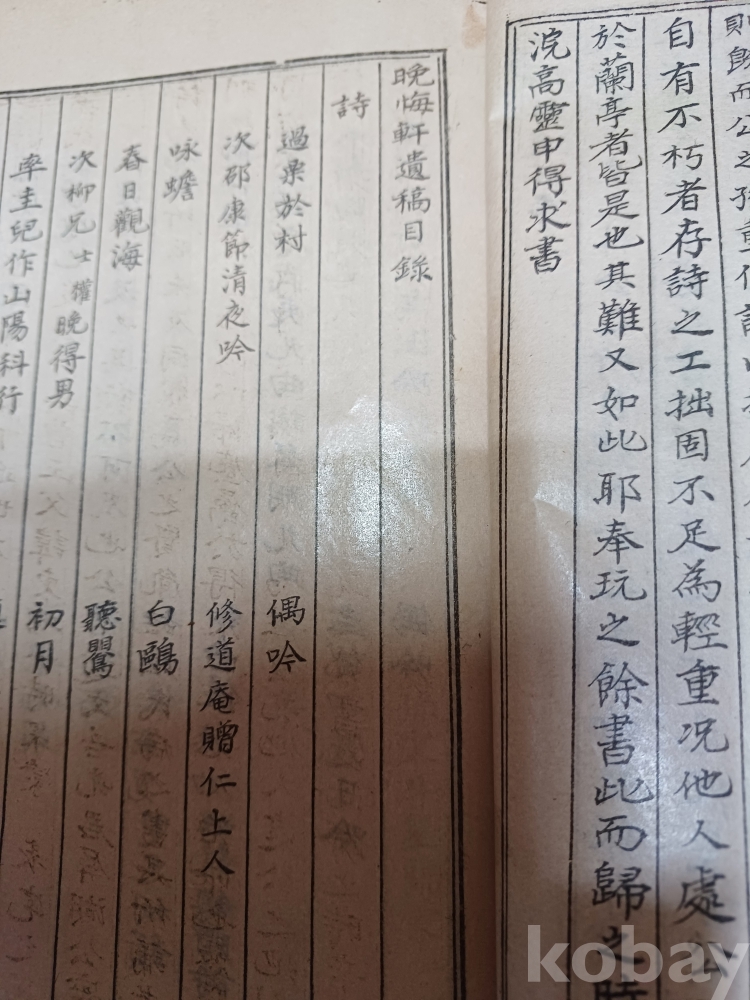 自有不朽者存詩之工拙固不足為輕重况他人處公
於蘭亭者皆是也其難又如此耶奉玩之餘書此而歸之時
浣高靈申得求書
晚悔軒遺稿目錄
詩
過栗於村 偶吟
次邵康節清夜吟 修道庵贈仁上人
咏蟾 白鷗
春日觀海 聽鸎
次柳兄士權晩得男 初月
率圭兒作山陽科行
kobay